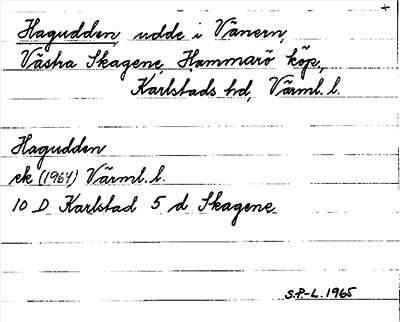 Hagudden, udde i Vänern,
Västra Skagene, Hammarö köp.,
Karlstads hd, Värml. l.
Hagudden
ek (1964) Värml. l.
10 D Karlstad 5 d Skagene
S.P.-L. 1965